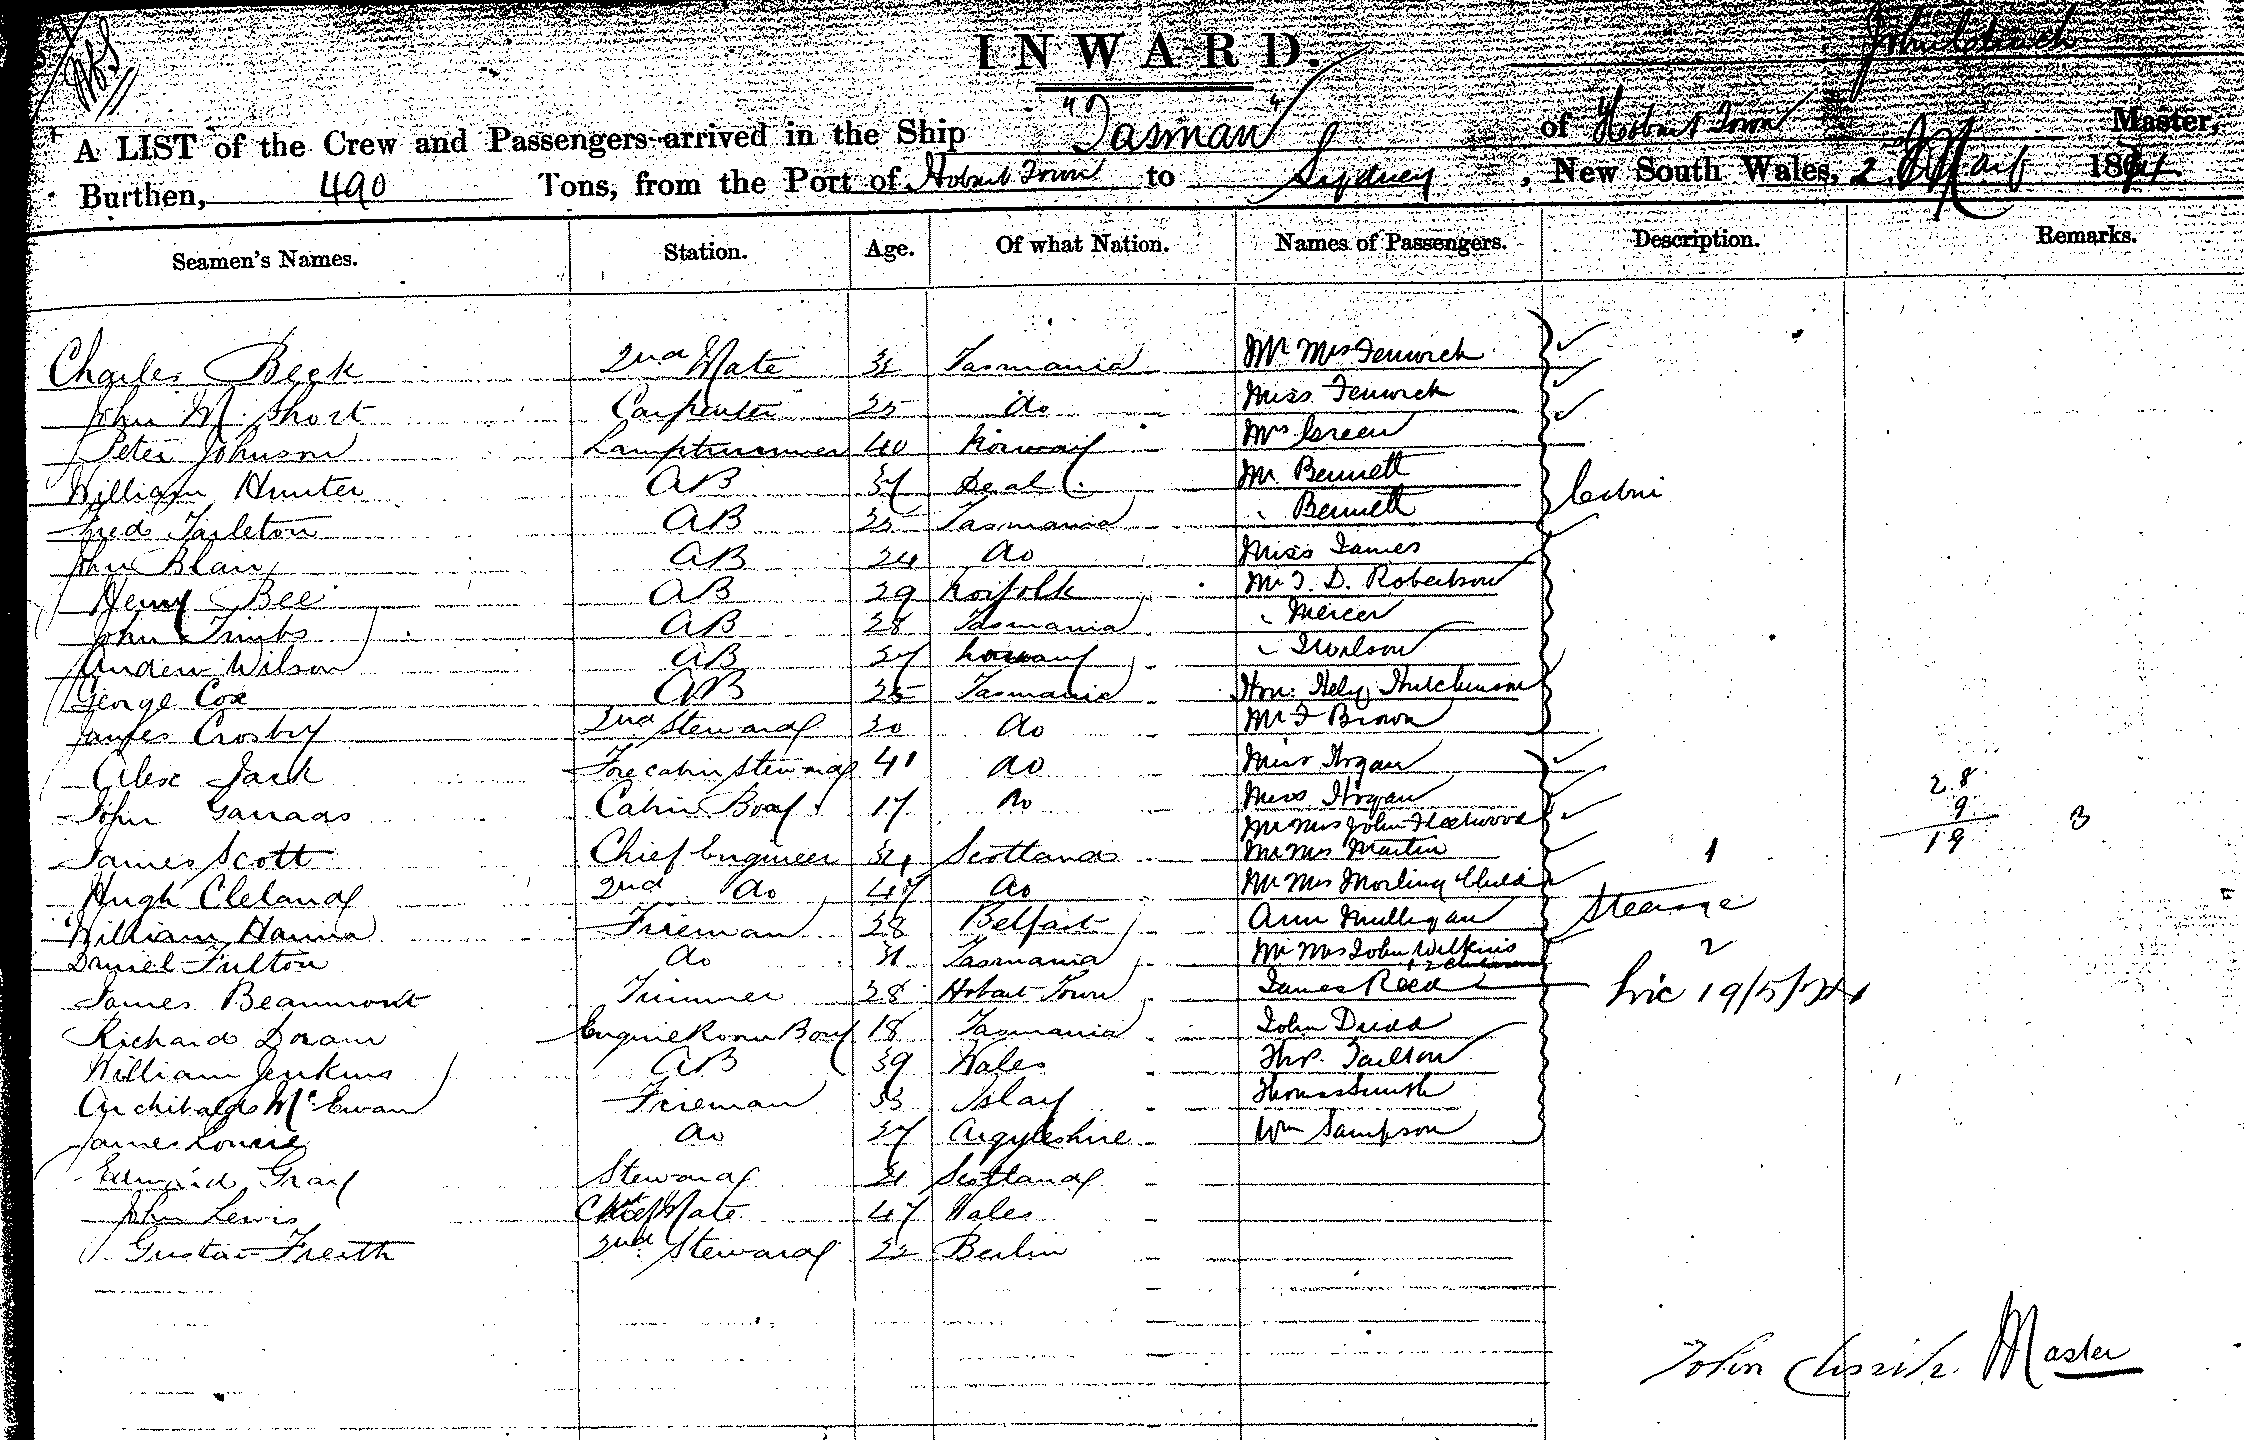 INWARD.
A LIST of the Crew and Passengers arrived in the Ship "Tasman" of Hobart Town Master,
Burthen, 490 Tons, from the Port of Hobart Town to Sydney, New South Wales, 2 May 1874
Seamen's Names. Station. Age. Of what Nation. Names of Passengers. Description. Remarks.
Charles Beek 2nd Mate Tasmania Mr Mrs Fenwick
John M. Short Carpenter 25 do Miss Fenwick
Peter Johnson Lamptrimmer 40 Norway Mrs Green
William Hunter AB 37 Deal Mr Bennett Cabin
Fred Tarleton AB 25 Tasmania " Bennett
John Blair AB 24 do Miss James
Henry Bee AB 29 Norfolk Mr J. D. Robertson
John Timbs AB 28 Tasmania " Mercer
Andrew Wilson AB 37 Norway
George Cox AB 25 Tasmania Hon. Hely Hutchinson
James Crosby 2nd Steward 30 do Mr F Brown
Alex Jack Forecabin Steward 41 do Miss Hogan
John Garraas Cabin Boy 17 do Miss Hogan 28
Mr Mrs John Fleetwood 9 3
James Scott Chief Engineer Scotland Mr Mrs Martin 1 19
Hugh Cleland 2nd do 47 do Mr Mrs Morling Child
William Hanna Fireman 28 Belfast Ann Mulligan Steerage
Daniel Fulton do 31 Tasmania Mr Mrs John Wilkins 2
+ 2 children
James Beaumont Trimmer 28 Hobart Town James Reed 19/5/74
Richard Doran Engine Room Boy 18 Tasmania John Dudd
William Jenkins AB 39 Wales Thos. Tarlton
Archibald McEwan Fireman 33 Islay Thomas Smith
James Lourie do 37 Argyleshire Wm Sampson
Edward Gray Steward 31 Scotland
John Lewis Chief Mate 47 Wales
Gustav Freith 2nd Steward 22 Berlin
John Clinch Master